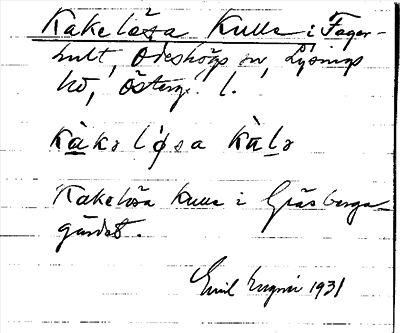 Kakelösa Kulle i Fager-
hult, Ödeshögs sn, Lysings
hd, Östergr. l.
Kàkə lø̀sa Kàlə
Kakelösa kulle i Gräsberga-
gärdet.
Emil 1931